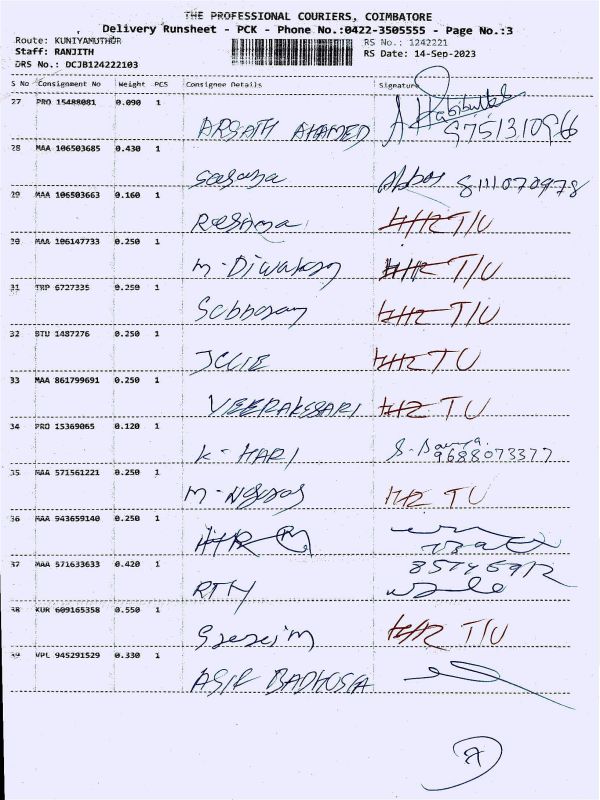 THE PROFESSIONAL COURIERS, COIMBATORE
Delivery Runsheet - PCK - Phone No.:0422-3505555 - Page No.:3
Route: KUNIYAMUTHUR RS No.: 1242221
Staff: RANJITH RS Date: 14-Sep-2023
DRS No.: DCJB124222103
S No Consignment No Weight PCS Consignee Details Signature
27 PRO 15488081 0.090 1
ARSATH AHAMED 9751310966
28 MAA 106503685 0.430 1
Abbas 8111070978
29 MAA 106503663 0.160 1
Reshma T/U
30 MAA 106147733 0.250 1
M-Diwakar T/U
31 TRP 6727335 0.250 1
T/U
32 STU 1487276 0.250 1
JULIE TU
33 MAA 861799691 0.250 1
VEERAKESARI TU
34 PRO 15369065 0.120 1
K-HARI 9688073377
35 MAA 571561221 0.250 1
TU
36 MAA 943659140 0.250 1
37 MAA 571633633 0.420 1
38 KUR 609165358 0.550 1
T/U
39 VPL 945291529 0.330 1
ASIR BADHUSHA